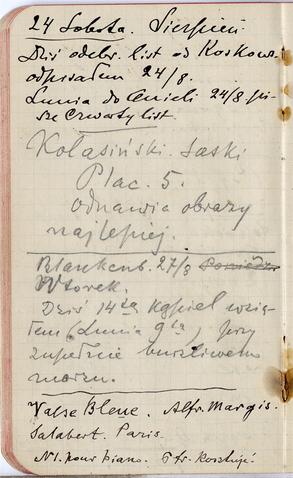 24 Sobota. Sierpień
Dziś odebr. list od Koskows.
odpisałem 24/8.
Lunia do Anieli 24/8 pi-
sze czwarty list.
Kołasiński. Saski
Plac. 5.
odnawia obrazy
najlepiej.
Blankenb. 27/8
Wtorek.
Dziś 14ta kąpiel wzią-
łem (Lunia 9ta) przy
zupełnie burzliwem
morzu.
Valse Bleue. Alfr. Margis.
Salabert. Paris.
N1. pour piano. fr.